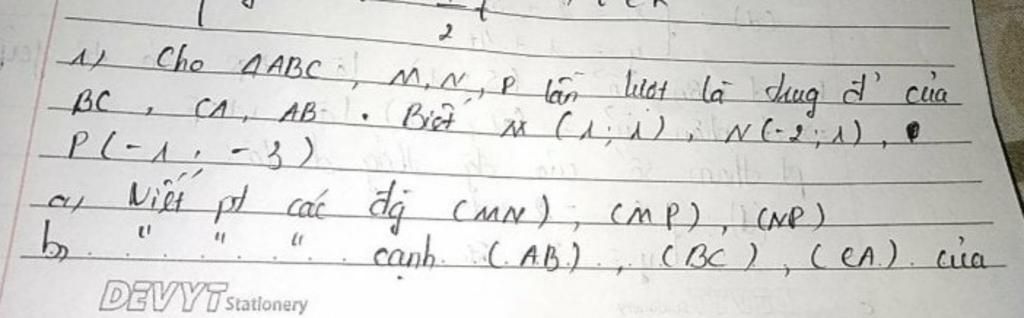 2
1) Cho ΔABC, M, N, P lần lượt là trung đ' của
BC, CA, AB. Biết M(1;1), N(-2;1),
P(-1; -3)
a, Viết pt các đg (MN), (MP), (NP)
b, " " " cạnh (AB), (BC), (CA) của
DEVYT Stationery